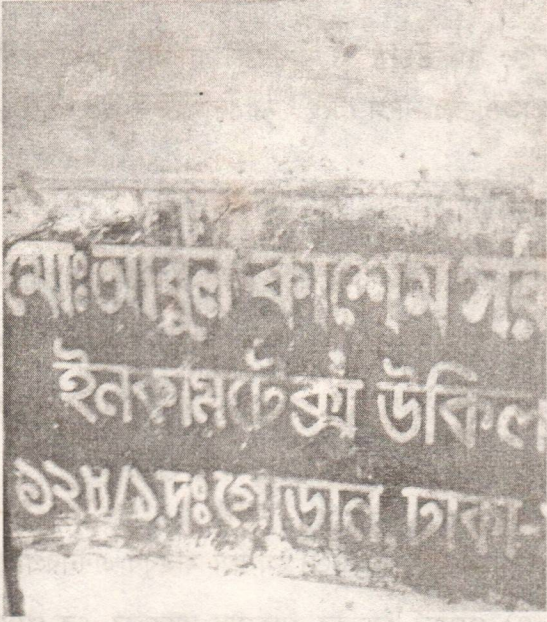 মোঃ আবুল কাশেম সর
ইনকামটেক্স উকিল
১২৮/১ দঃ গোড়ান, ঢাকা-